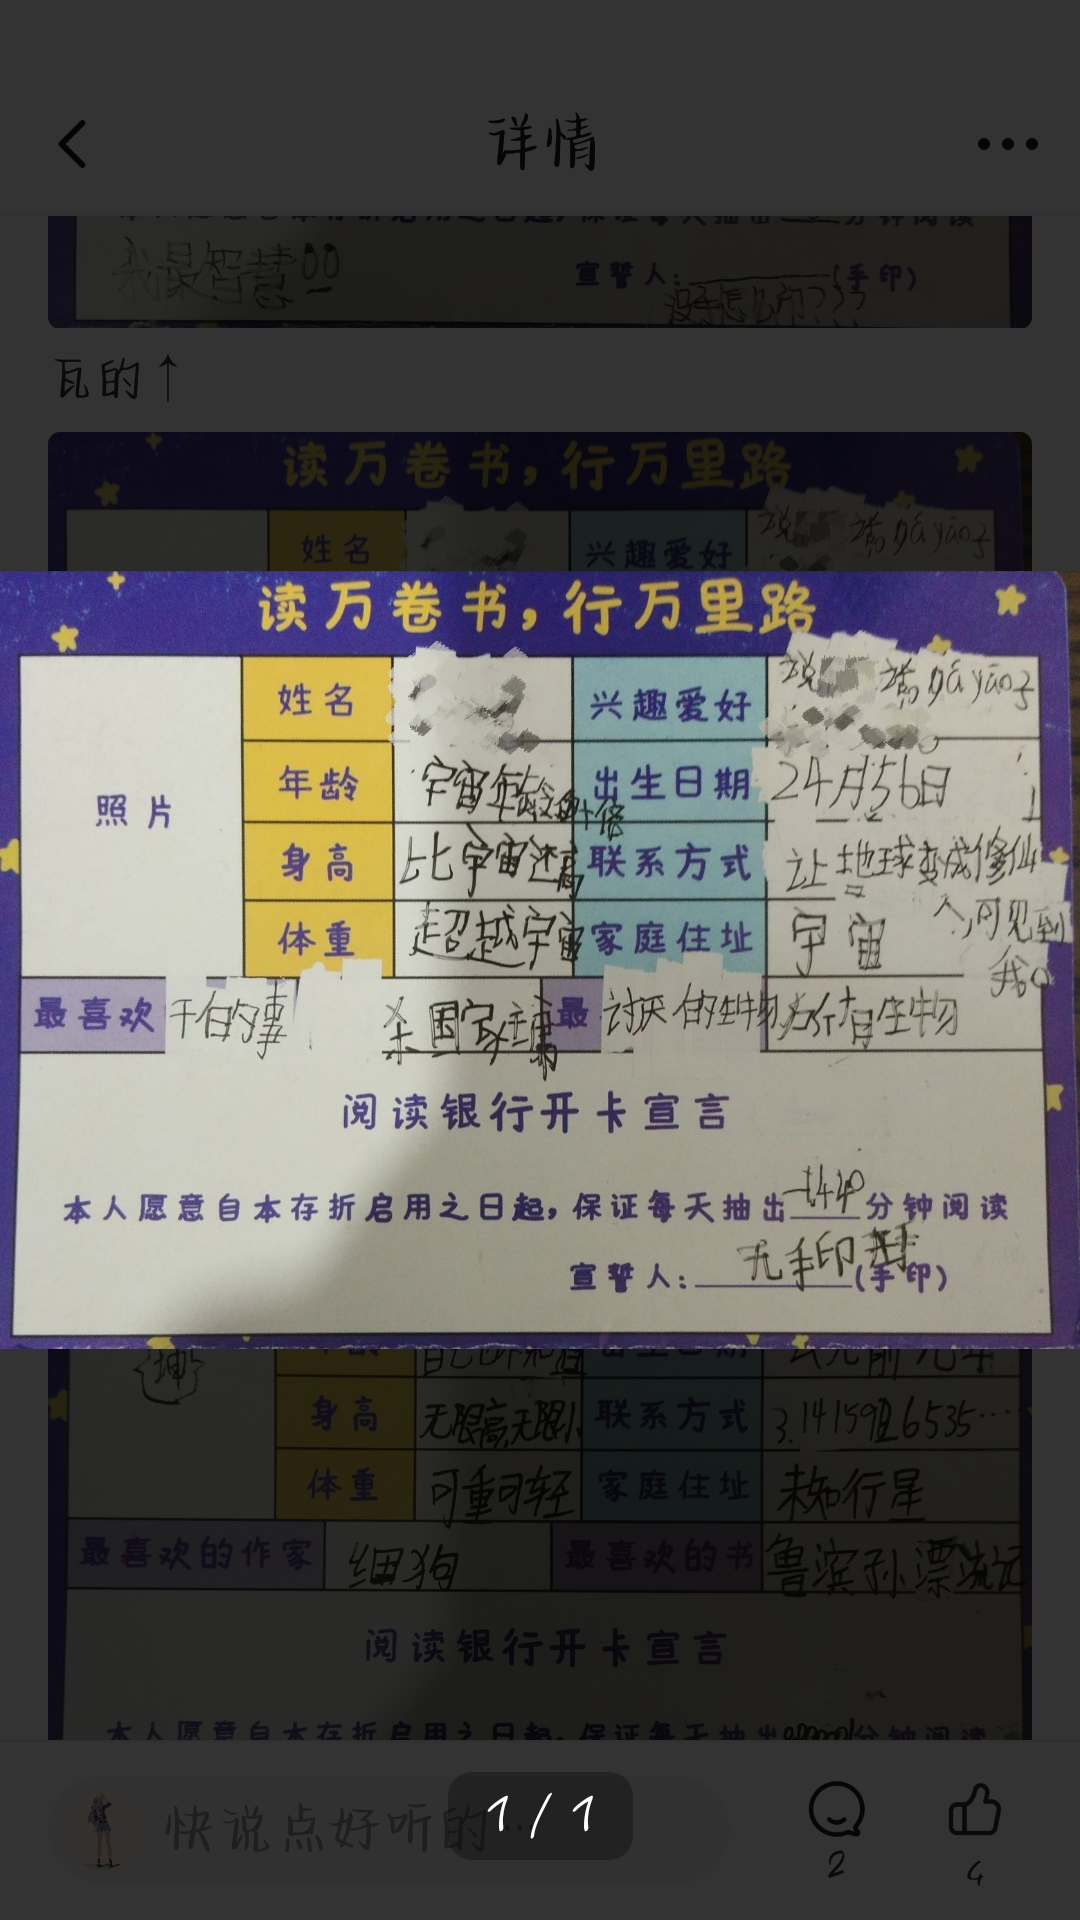 详情
我最智慧
宣誓人:(手印)
没手怎么印???
瓦的↑
读万卷书,行万里路
姓名 兴趣爱好 说
读万卷书,行万里路
照片
姓名 兴趣爱好 说
年龄 宇宙年龄 倍 出生日期 24月56日
身高 比宇宙还高 联系方式 让地球变成修仙
人,可见到
我。
体重 超越宇宙 家庭住址 宇宙
最喜欢干的事 杀国家 最讨厌的生物 所有生物
阅读银行开卡宣言
本人愿意自本存折启用之日起,保证每天抽出-1440分钟阅读
宣誓人:无手印(手印)
身高 无限高,无限小 联系方式 3.1415926535……
体重 可重可轻 家庭住址 未知行星
最喜欢的作家 细狗 最喜欢的书 鲁滨孙漂流记
阅读银行开卡宣言
本人愿意自本存折启用之日起,保证每天抽出 分钟阅读
快说点好听的
1/1
2
4